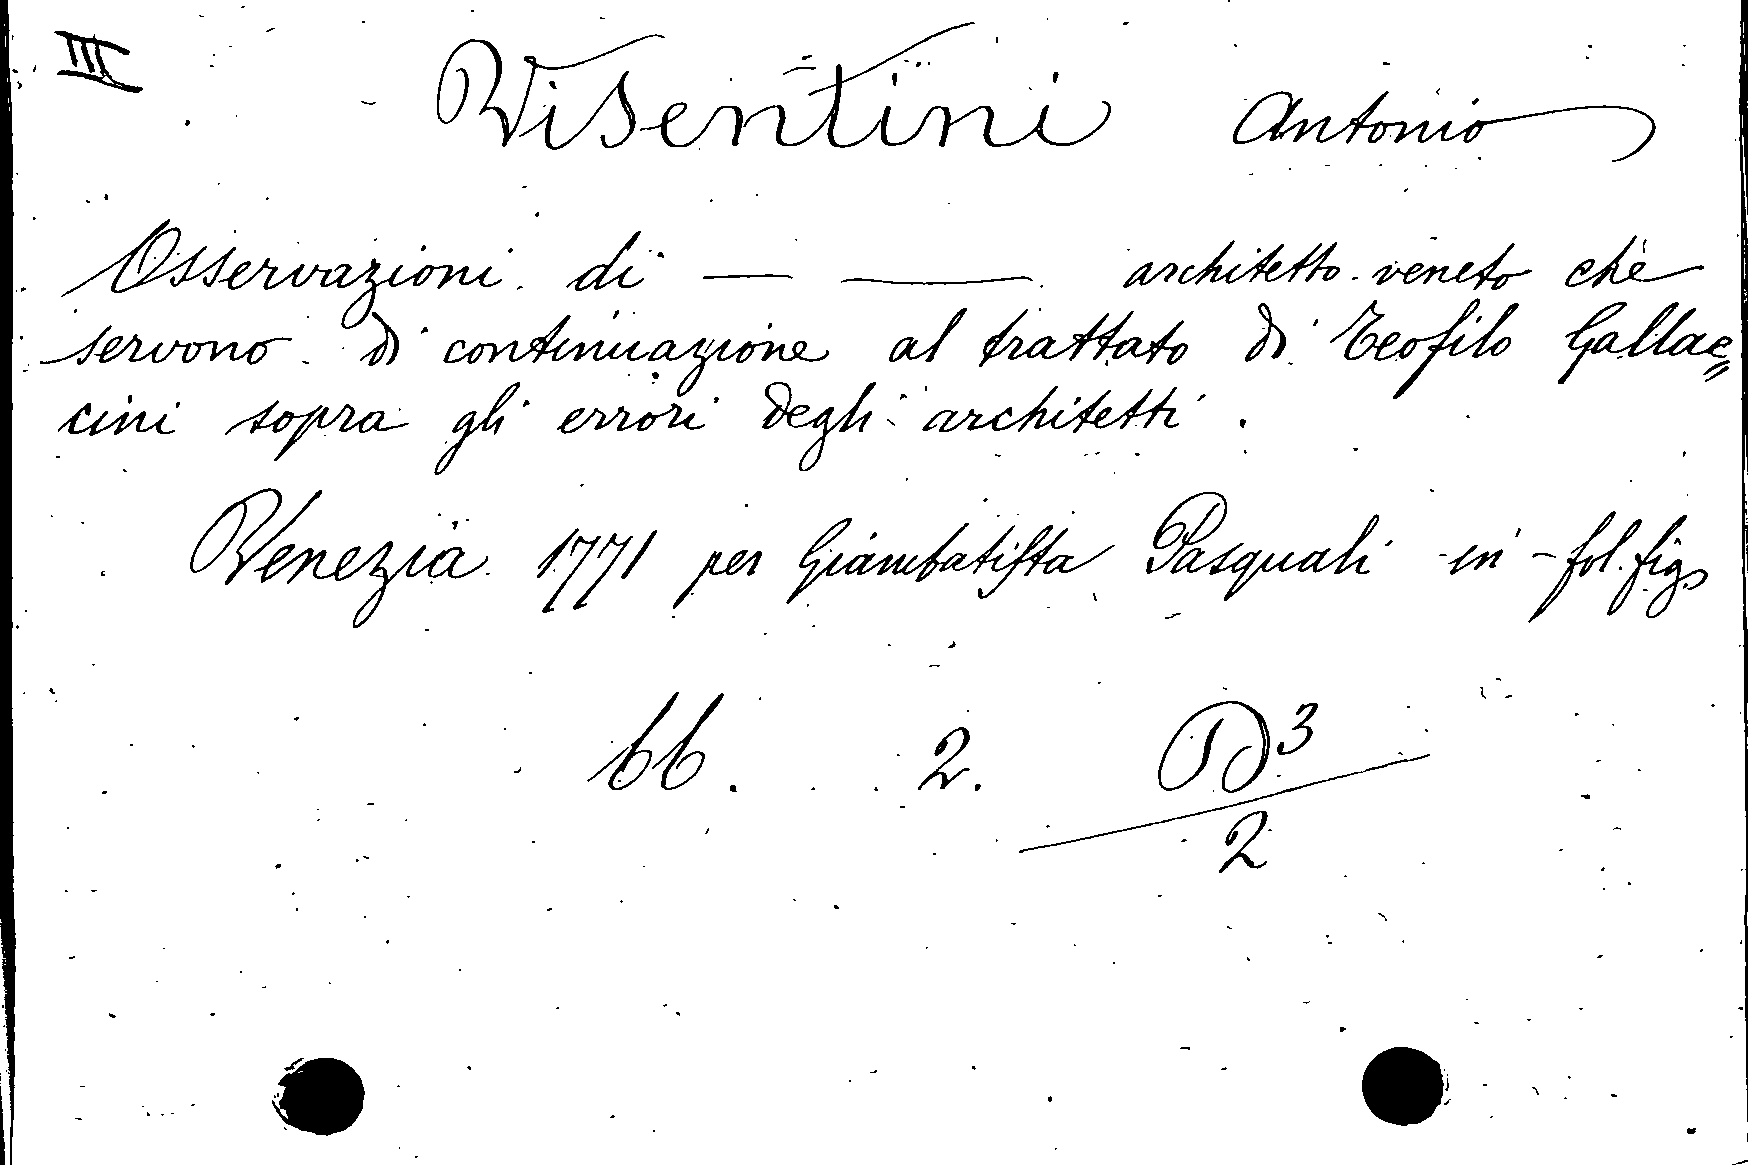 III
Visentini Antonio
Osservazioni di — — architetto veneto che
servono di continuazione al trattato di Teofilo Gallac=
cini sopra gli errori degli architetti.
Venezia 1771 per Giambatista Pasquali in-fol. fig.
bb. 2. D³
2